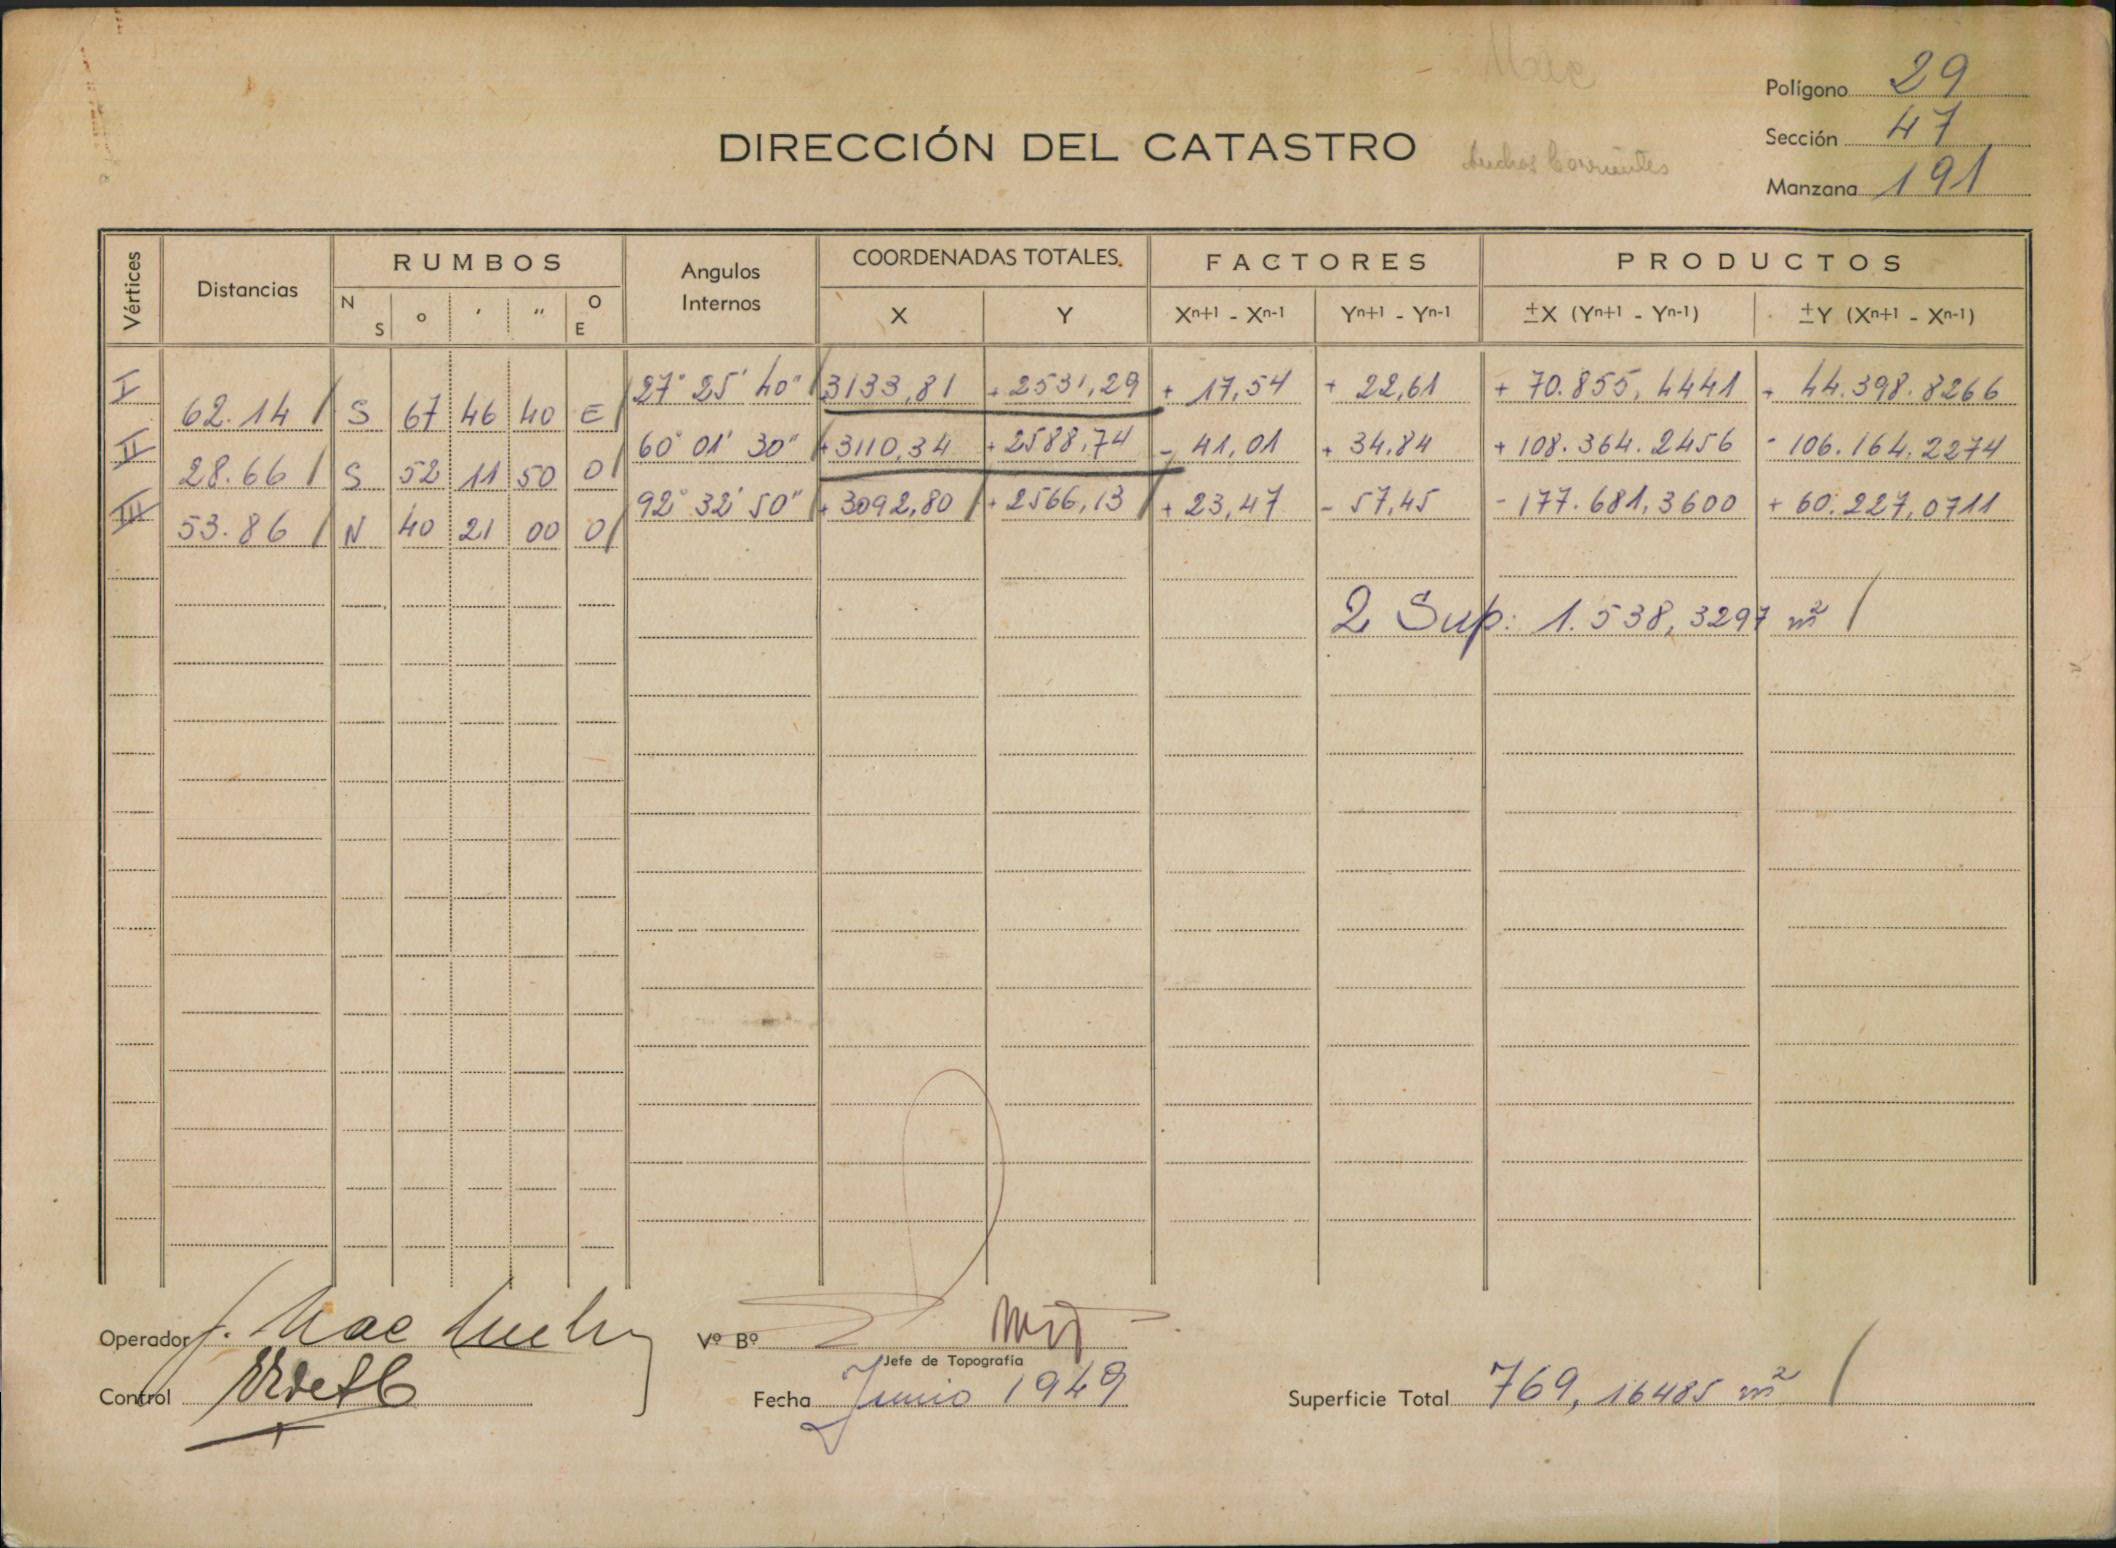 Polígono 29
DIRECCIÓN DEL CATASTRO
Anchos Corrientes
Sección 47
Manzana 191
Vértices Distancias RUMBOS Angulos Internos COORDENADAS TOTALES. FACTORES PRODUCTOS
N S o ' " O E X Y Xn+1 - Xn-1 Yn+1 - Yn-1 ±X (Yn+1 - Yn-1) ±Y (Xn+1 - Xn-1)
I 27° 25' 40" 3133,81 + 2531,29 + 17,54 + 22,61 + 70.855,4441 + 44.398.8266
62.14 S 67 46 40 E
II 60° 01' 30" +3110,34 + 2588,74 - 41,01 + 34,84 + 108.364.2456 - 106.164.2274
28.66 S 52 11 50 O
III 92° 32' 50" + 3092,80 + 2566,13 + 23,47 - 57,45 - 177.681,3600 + 60.227,0711
53.86 N 40 21 00 O
2 Sup: 1.538,3297 m²
Operador J. Mac
Vº Bº
Jefe de Topografía
Control
Fecha Junio 1949
Superficie Total 769,16485 m²